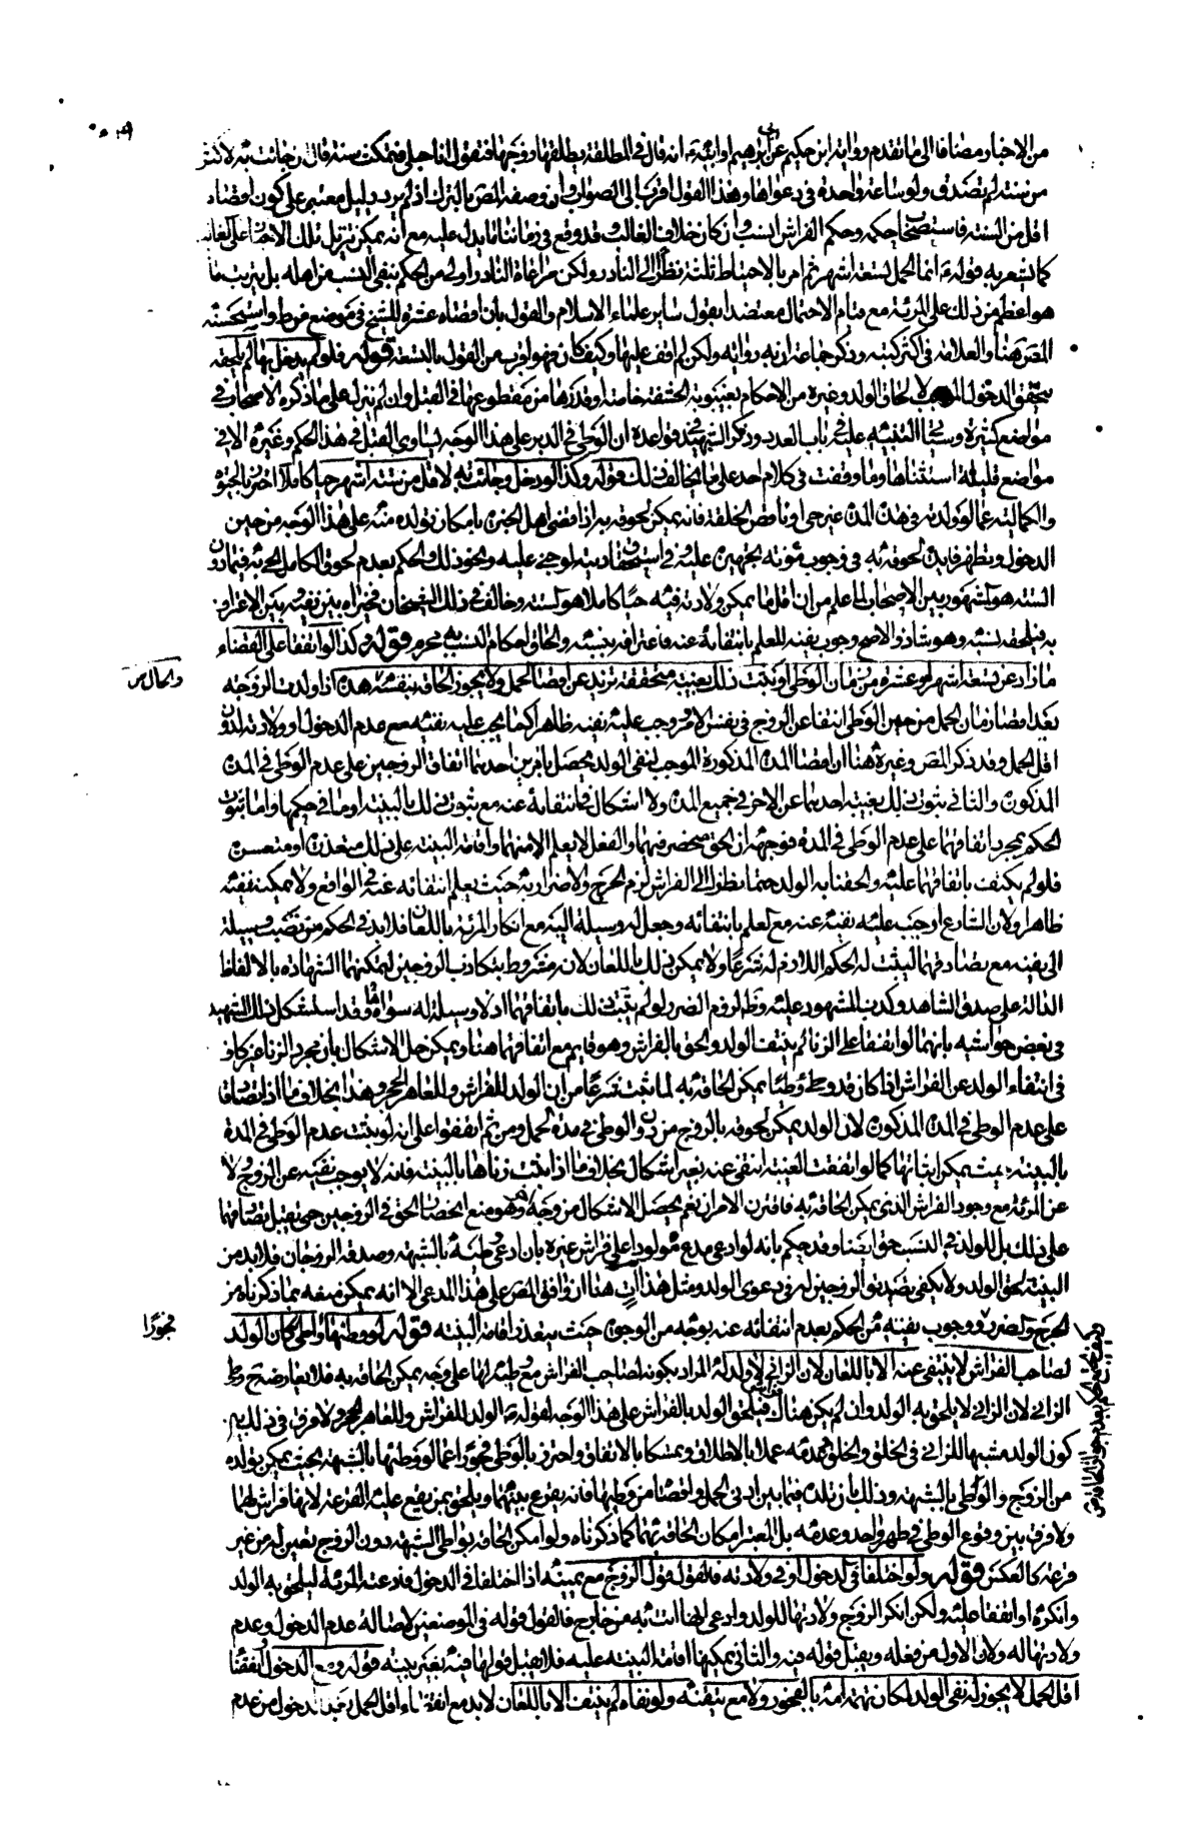 من الاخبار مضافا الى ما تقدم رواية ابن حكيم عن ابى ابرهيم او ابنه ع انه قال فى المطلقة يطلقها زوجها فتقول انا حبلى فتمكث سنة قال ان جائت به لاكثر
من سنة لم تصدق ولو ساعة واحدة فى دعواها وهذا القول اقرب الى الصواب وان وصفه المص بالترك اذ لم يرد دليل معتبر على كون اقصاه
اقل من السنة فاستصحاب حكمه وحكم الفراش انسب وان كان خلاف الغالب وقد وقع فى زماننا ما يدل عليه مع انه يمكن تنزيل تلك الاخبار على الغالب
كما يشعر به قوله ع انما الحمل تسعة اشهر ثم امر بالاحتياط ثلثة نظرا الى النادر ولكن مراعاة النادر اولى من الحكم بنفى النسب عن اهله بل يترتب ما
هو اعظم من ذلك على المرئة مع قيام الاحتمال معتضدا بقول ساير علماء الاسلام والقول بان اقصاه عشرة للشيخ فى موضع من ط واستحسنه
المص هنا والعلامة فى اكثر كتبه وذكر جماعة ان به رواية ولكن لم اقف عليها وكيف كان فهو اقرب من القول بالتسعة قوله فلو لم يدخل بها لم يلحقه
يتحقق الدخول الموجب لالحاق الولد وغيره من الاحكام بغيبوبة الحشفة خاصة او قدرها من مقطوعها فى القبل وان لم ينزل على ما ذكره الاصحاب فى
مواضع كثيرة وسياتى التنبيه عليه فى باب العدد وذكر الشهيد فى قواعده ان الوطى فى الدبر على هذا الوجه يساوى القبل فى هذا الحكم وغيره الا فى
مواضع قليلة استثناها وما وقفت فى كلام احد على ما يخالف ذلك قوله وكذا لو دخل وجائت به لاقل من ستة اشهر حيا كاملا احترز بالحيوة
والكمالية عما لو ولدته فى هذه المدة غير حى او ناقص الخلقة فانه يمكن لحوقه به اذا قضى اهل الخبرة بامكان تولده منه على هذا الوجه من حين
الدخول وتظهر فايدة لحوقه به فى وجوب مؤنة تجهيزه عليه وفى استحقاق ديته لو جنى عليه ونحو ذلك والحكم بعدم لحوق الكامل الحى به فيما دون
الستة هو المشهور بين الاصحاب لما علم من ان اقل ما يمكن ولادته فيه حيا كاملا هو الستة وخالف فى ذلك الشيخان فخيراه بين نفيه وبين الاعتراف
به فيلحقه نسبه وهو شاذ والاصح وجوب نفيه للعلم بانتفائه عنه فاعترافه بنسبه والحاق احكام النسب به محرم قوله وكذا لو اتفقا على انقضاء
ما زاد عن تسعة اشهر او عشرة من زمان الوطى او ثبت ذلك بغيبته متحققة تزيد عن اقصا الحمل ولا يجوز الحاقه بنفسه هذه اذا ولدت الزوجة
والحال س
بعد اقصا زمان الحمل من حين الوطى انتفا عن الزوج فى نفس الامر ووجب عليه نفيه ظاهرا كما يجب عليه نفيه مع عدم الدخول او ولادته لدون
اقل الحمل وقد ذكر المص وغيره هنا ان انقضا المدة المذكورة الموجب لنفى الولد يحصل بامرين احدهما اتفاق الزوجين على عدم الوطى فى المدة
المذكورة والثانى ثبوت ذلك بغيبة احدهما عن الاخر فى جميع المدة ولا اشكال فى انتفائه عنه مع ثبوت ذلك بالبينة او ما فى حكمها واما ثبوت
الحكم بمجرد اتفاقهما على عدم الوطى فى المدة فوجهه ان الحق منحصر فيهما والفعل لا يعلم الا منهما واقامة البينة على ذلك متعذرة او متعسرة
فلو لم يكتف باتفاقهما عليه والحقنا به الولد حتما نظرا الى الفراش لزم الحرج والاضرار به حيث يعلم انتفائه عنه فى الواقع ولا يمكنه نفيه
ظاهرا ولان الشارع اوجب عليه نفيه عنه مع العلم بانتفائه وجعل له وسيلة اليه مع انكار المرئة باللعان فلا بد فى الحكم من نصب وسيلة
الى نفيه مع تصادقهما ليثبت له الحكم اللازم له شرعا ولا يمكن ذلك باللعان لانه مشروط بتكاذب الزوجين ليمكنهما الشهادة بالالفاظ
الدالة على صدق الشاهد وكذب المشهود عليه وظ لزوم الضرر لو لم يثبت ذلك باتفاقهما اذ لا وسيلة له سواه وقد استشكل ذلك الشهيد
فى بعض حواشيه بانهما لو اتفقا على الزنا لم ينتف الولد والحق بالفراش وهو قايم مع اتفاقهما هنا ويمكن حل الاشكال بان مجرد الزنا غير كاف
فى انتفاء الولد عن الفراش اذا كان قد وطئ وطئا يمكن الحاقه به لما ثبت شرعا من ان الولد للفراش وللعاهر الحجر وهذا بخلاف ما اذا تصادقا
على عدم الوطى فى المدة المذكورة لان الولد لا يمكن لحوقه بالزوج من دون الوطى فى مدة الحمل ومن ثم اتفقوا على انه لو ثبت عدم الوطى فى المدة
بالبينة بحيث يمكن اثباتها كما لو اتفقت الغيبة انتفى عنه بغير اشكال بخلاف ما اذا ثبت زناها بالبينة فانه لا يوجب نفيه عن الزوج ولا
عن المرئة مع وجود الفراش الذى يمكن الحاقه به فافترق الامران نعم يحصل الاشكال من وجه اخر وهو منع انحصار الحق فى الزوجين حتى يقبل تصادقهما
على ذلك بل للولد فى النسب حق ايضا وقد حكم بانه لو ادعى مدع مولودا على فراش غيره بان ادعى وطيه بالشبهة وصدقه الزوجان فلا بد من
البينة لحق الولد ولا يكفى تصديق الزوجين له فى دعوى الولد ومثل هذا ات هنا ان وافق المص على هذا المدعى الا انه يمكن منعه بما ذكرناه من
الحرج والضرر ووجوب نفيه من الحكم بعدم انتفائه عنه بوجه من الوجوه حيث يتعذر اقامة البينة قوله لو وطئها واطئ كان الولد
فجورا
لصاحب الفراش لا ينتفى عنه الا باللعان لان الزانى لا ولد له المراد بكونه لصاحب الفراش مع وطئه لها على وجه يمكن الحاقه به فلا يعارضه ح وطى
الزانى لان الزانى لا يلحق به الولد وان لم يكن هناك فراش فيلحق الولد بالفراش على هذا الوجه لقوله ع الولد للفراش وللعاهر الحجر ولا فرق فى ذلك بين
كون الولد مشبها للزانى فى الخلق والخلق وعدمه عملا بالاطلاق وتمسكا بالاتفاق واحترز بالوطى فجورا عما لو وطئها بالشبهة بحيث يمكن تولده
من الزوج والواطى بالشبهة وذلك بان تلده فيما بين ادنى الحمل واقصاه من وطيهما فانه يقرع بينهما ويلحق بمن يقع عليه القرعة لانها فراش لهما
ولا فرق بين وقوع الوطى فى طهر واحد وعدمه بل المعتبر امكان الحاقه بهما كما ذكرناه ولو امكن الحاقه بواطى الشبهة دون الزوج تعين له من غير
قرعة كالعكس قوله ولو اختلفا فى الدخول او فى ولادته فالقول قول الزوج مع يمينه اذا اختلفا فى الدخول فادعته المرئة ليلحق به الولد
وانكره او اتفقا عليه ولكن انكر الزوج ولادتها للولد وادعى انها اتت به من خارج فالقول قوله فى الموضعين لاصالة عدم الدخول وعدم
ولادتها له ولان الاول من فعله ويقبل قوله فيه والثانى يمكنها اقامة البينة عليه فلا يقبل قولها فيه بغير بينة قوله ومع الدخول وانقضا
اقل الحمل لا يجوز له نفى الولد لمكان تهمة امه بالفجور ولا مع تيقنه ولو نفاه لم ينتف الا باللعان لا بد مع انقضاء اقل الحمل بعد الدخول من عدم